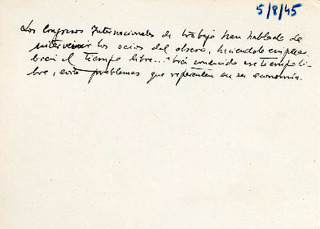 5/8/45
Los Congresos Internacionales de trabajo han hablado de
intervenir los ocios del obrero, haciendo emplear
bien el tiempo libre... bien conducido ese tiempo li-
bre, evita problemas que repercuten en su economía.